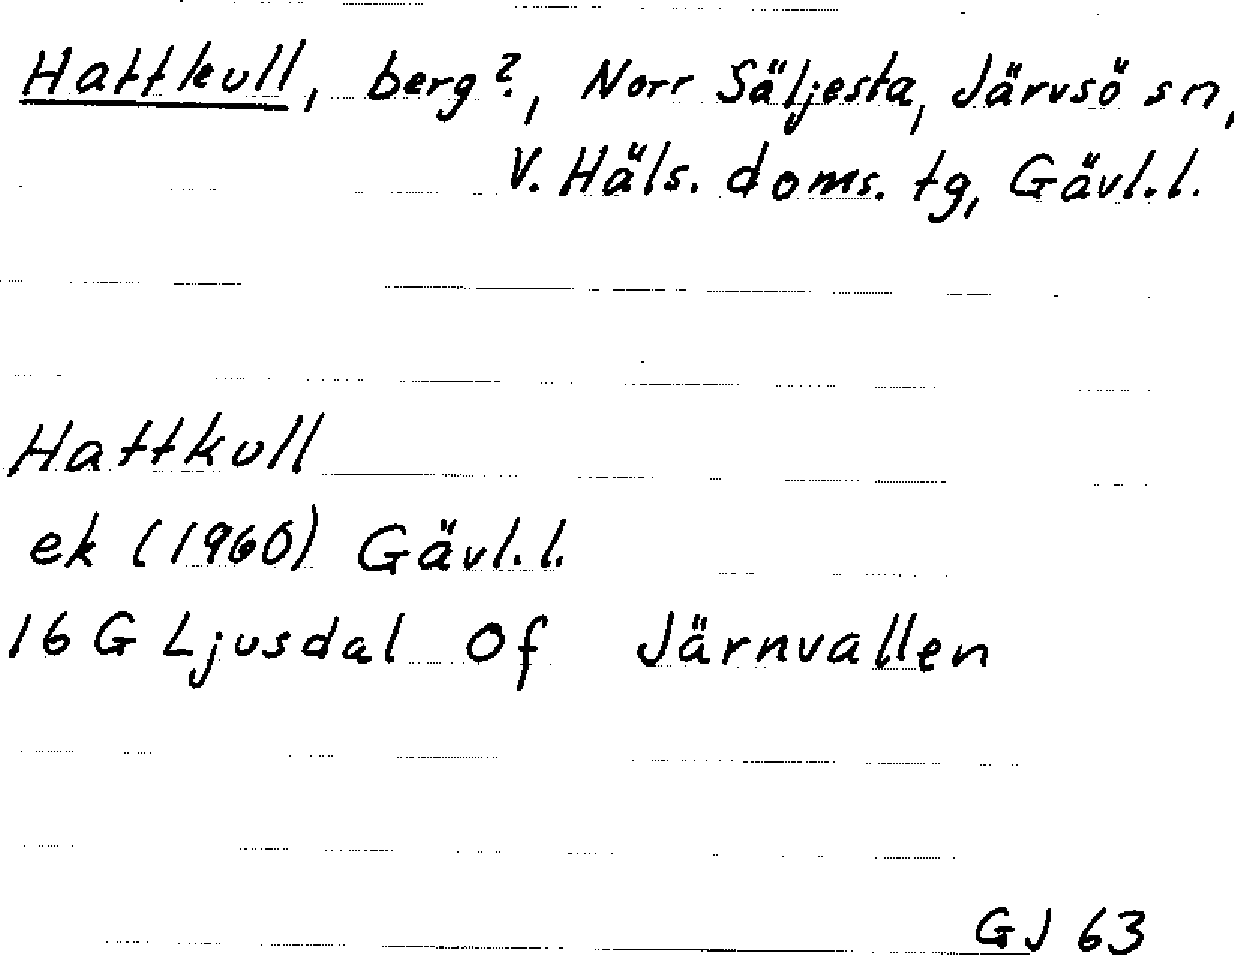 Hattkull, berg?, Norr Säljesta, Järvsö sn,
V. Häls. doms. tg, Gävl.l.
Hattkull
ek (1960) Gävl.l.
16 G Ljusdal Of Järnvallen
GJ 63